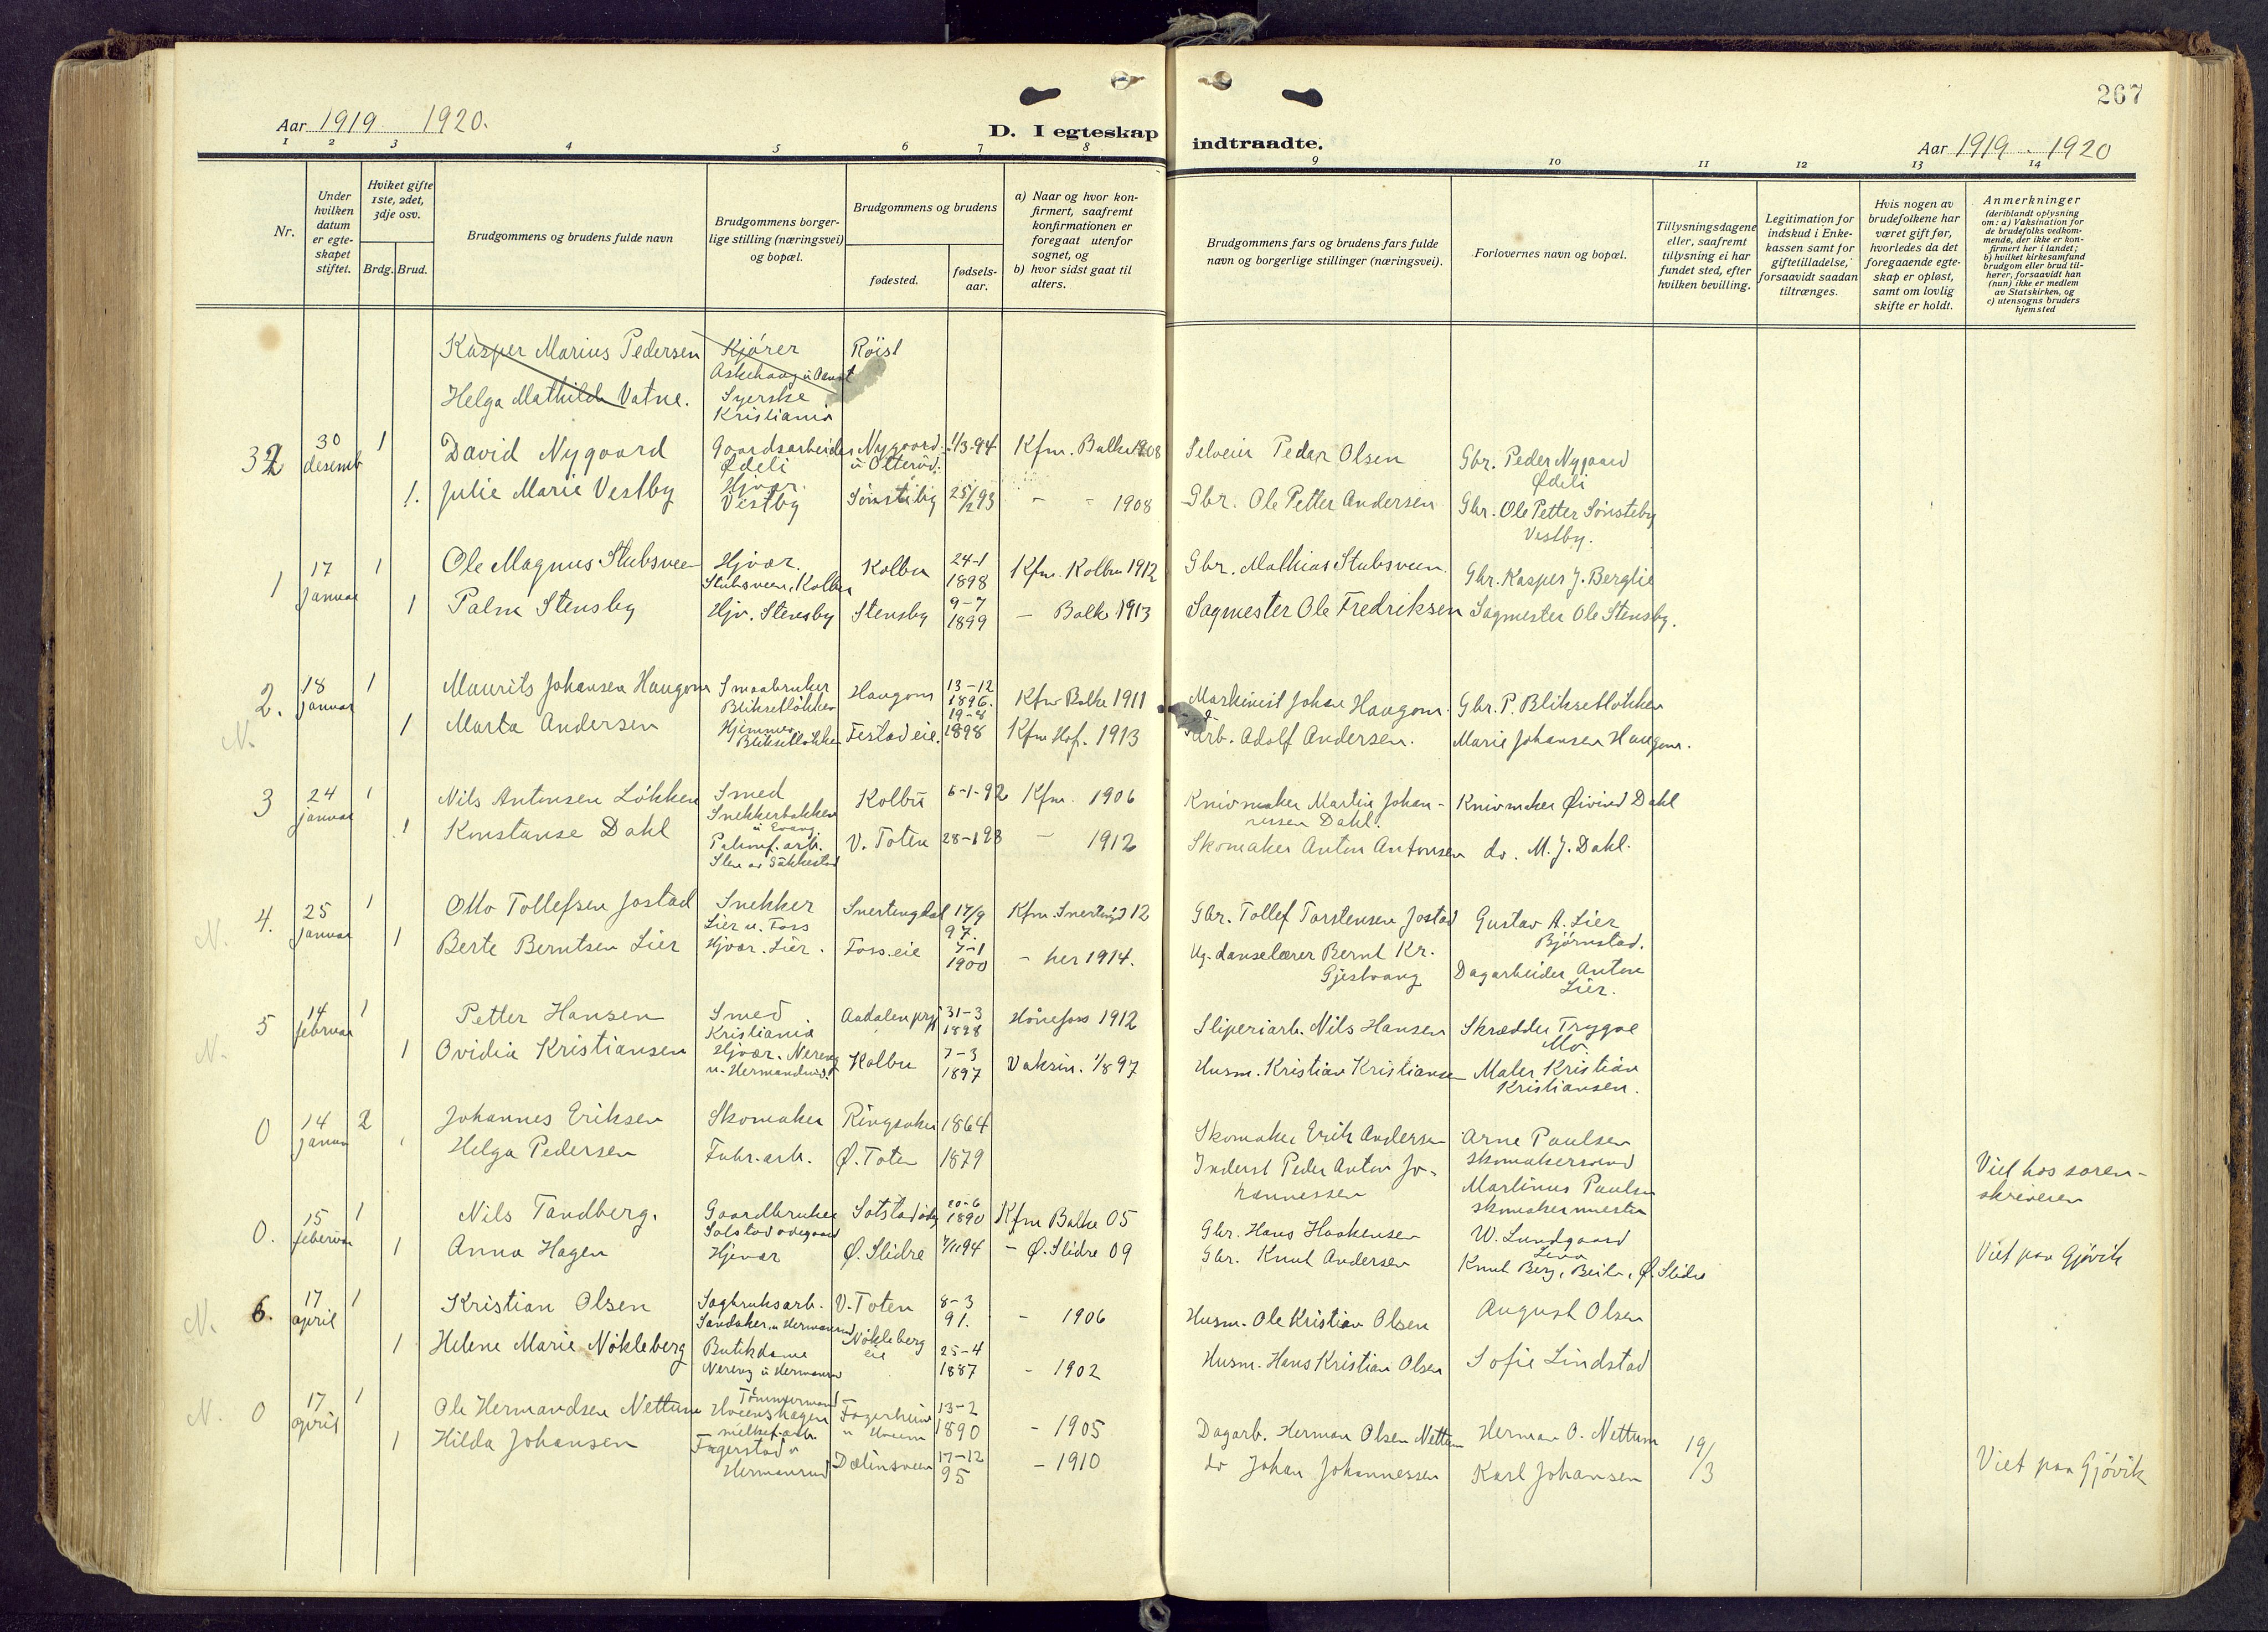 267
Aar 1919 1920.
D. I egteskap
indtraadte.
Aar 1919 . 1920
1 2 3 4 5 6 7 8
9 10 11 12 13 14
Nr.
Under hvilken datum er egteskapet stiftet.
Hvilket gifte 1ste, 2det, 3dje osv.
Brdg. Brud.
Brudgommens og brudens fulde navn
Brudgommens borgerlige stilling (næringsvei) og bopæl.
Brudgommens og brudens
fødested.
fødselsaar.
a) Naar og hvor konfirmert, saafremt konfirmationen er foregaat utenfor sognet, og
b) hvor sidst gaat til alters.
Brudgommens fars og brudens fars fulde navn og borgerlige stillinger (næringsvei).
Forlovernes navn og bopæl.
Tillysningsdagene eller, saafremt tillysning ei har fundet sted, efter hvilken bevilling.
Legitimation for indskud i Enkekassen samt for giftetilladelse, forsaavidt saadan tiltrænges.
Hvis nogen av brudefolkene har været gift før, hvorledes da det foregaaende egteskap er opløst, samt om lovlig skifte er holdt.
Anmerkninger
(deriblandt oplysning om: a) Vaksination for de brudefolks vedkommende, der ikke er konfirmert her i landet;
b) hvilket kirkesamfund brudgom eller brud tilhører, forsaavidt han (hun) ikke er medlem av Statskirken, og
c) utensogns bruders hjemsted
Kasper Marius Pedersen Kjører Røisl
Helga Mathilde Vatne. Syerske
Kristiania
32 30 desemb 1 David Nygaard Gaardsarbeider Ødeli Nygaard u Olterud. 1/3-94 Kfm. Balke 1908 Selveier Peder Olsen Gbr. Peder Nygaard Ødeli
1. Julie Marie Vestby Hjvær. Vestby Sønsteby 25/12 93 - - 1908 Gbr. Ole Petter Andersen Gbr. Ole Petter Sønsteby Vestby.
1 17 januar 1 Ole Magnus Stubsveen Hjvær. Stubsveen, Kolbu Kolbu 24-1 1898 Kfm. Kolbu 1912 Gbr. Mathias Stubsveen. Gbr. Kasper J. Berglie
1 Palma Stensby Hjv. Stensby Stensby 9-7 1899 - Balke 1913 Sagmester Ole Fredriksen Sagmester Ole Stensby.
2. N. 18 januar 1 Maurits Johansen Haugom Smaabruker Blikset løkken Haugom 13-12 1896. Kfm Balke 1911 Maskinist Johan Haugom. Gbr. P. Bliksetløkken
1 Marta Andersen Hjemmev. Bliksetløkken Festad eie. 19-8 1898 Kfm Hof. 1913 Arb. Adolf Andersen. Marie Johansen Haugom.
3 24 januar 1 Nils Antonsen Løkken Smed Snekkerbakken u Evang. Kolbu 6-1-92 Kfm. 1906 Knivmaker Martin Johannessen Dahl. Knivmaker Øivind Dahl
1 Konstanse Dahl V. Toten 28-1 93 - 1912 Skomaker Anton Antonsen do. M. J. Dahl.
N. 4. 25 januar 1 Otto Tollefsen Jostad Snekker Lier u. Foss Snertingdal 17/9 97. Kfm. Snertingd 12 Gbr. Tollef Torstensen Jostad Gustav A. Lier Bjørnstad.
1 Berte Berntsen Lier Hjvær. Lier. Foss. eie 7-1 1900 - her 1914. Ug. danselærer Bernt Kr. Gjestvang Dagarbeider Anton Lier.
N. 5 14 februar 1 Petter Hansen Smed Kristiania Aadalen prgj 31-3 1898 Hønefoss 1912 Sliperiarb. Nils Hansen Skrædder Trygve Mo.
1 Ovidia Kristiansen Hjvær. Nereng u. Hermanrud. Kolbu 7-3 1897 Vaksin. 1/8 97 Husm. Kristian Kristiansen Maler Kristian Kristiansen.
0 14 januar 2 Johannes Eriksen Skomaker Ringsaker 1864 Skomaker Erik Andersen Arne Paulsen skomakersvend
1 Helga Pedersen Fabr. arb. Ø. Toten 1879 Inderst Peder Anton Johannessen Martinus Paulsen skomakermester Viet hos sorenskriveren
0. 15 februar 1 Nils Tandberg. Gaardbruker Sotstad ødegaard Sotstad ødg 20-6 1890 Kfm Balke 05 Gbr. Hans Haakensen W. Lundgaard Lena
1 Anna Hagen Hjevær Ø. Slidre 7/11 94 - Ø. Slidre 09 Gbr. Knut Andersen Knut Berg, Beito, Ø. Slidre Viet paa Gjøvik
N. 6. 17 april 1 Kristian Olsen Sagbruksarb. Sandaker u Hermanrud V. Toten 8-3 91. - 1906 Husm. Ole Kristian Olsen August Olsen
1 Helene Marie Nøkleberg Butikdame Nereng u Hermanrud Nøkleberg eie 25-4 1887 - 1902 Husm. Hans Kristian Olsen Sofie Lindstad
N. 0 17 april 1 Ole Hermandsen Nettum Tømmermand Hveenshagen Fagerheim u Hveem 13-2 1890 - 1905 Dagarb. Herman Olsen Nettum Herman O. Nettum 19/3
1 Hilda Johansen melkef. arb. Fagerstad u Hermanrud Dælinsveen 17-12 95 - 1910 do Johan Johannessen Karl Johansen Viet paa Gjøvik